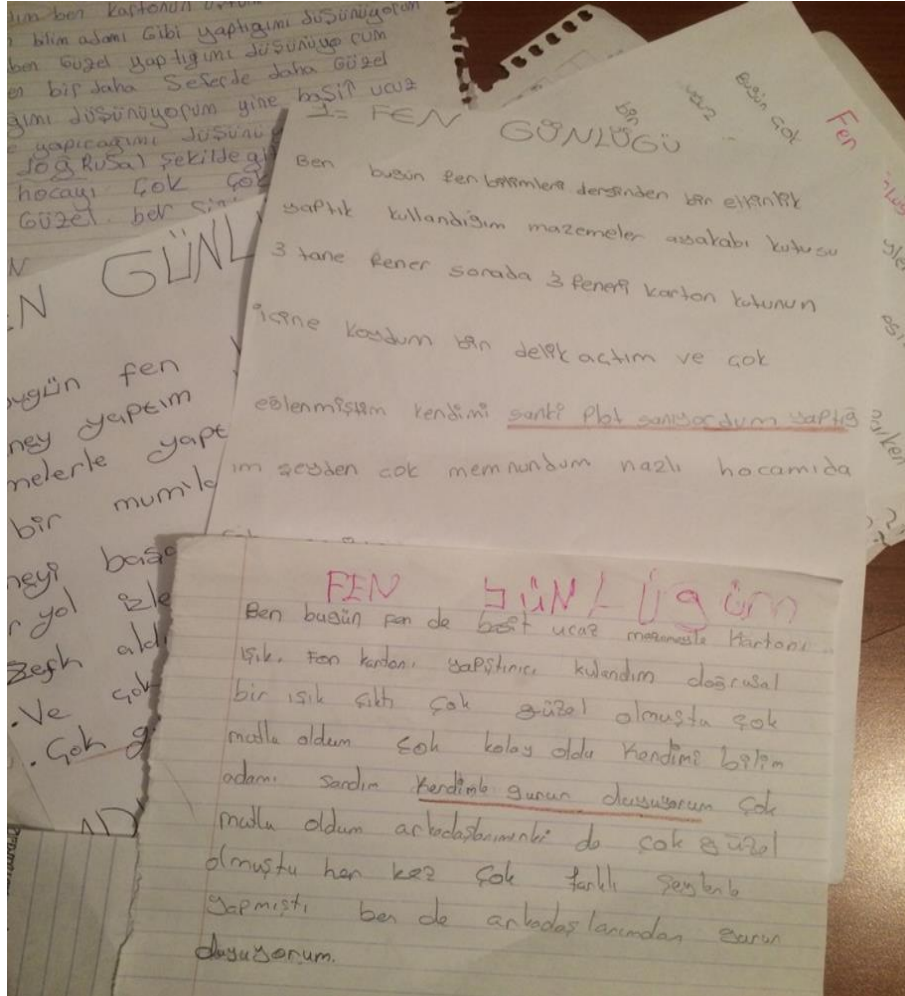 ım ben kartonun
bilim adamı Gibi yaptığımı düşünüyorum
ben Güzel yaptığımı düşünüyorum
bir daha Seferde daha Güzel
ğımı düşünüyorum yine basit ucuz
yapıcağımı düşünü
doğRusal şekilde gi
hocayı çok çok
Güzel. ben
N GÜNL
bugün fen
ney yaptım
melerle yapt
bir mumla
neyi başa
r yol izle
zevk aldı
. Ve çok
. Çok g
1= FEN GÜNLÜĞÜ
Ben bugün fen bilimleri dersinden bir etkinlik
yaptık kullandığım mazemeler ayakabı kutusu
3 tane fener sorada 3 feneri karton kutunun
içine koydum bir delik actım ve çok
eğlenmiştim kendimi sanki plot sanıyordum yaptığ
ım şeyden cok memnundum nazlı hocamıda
bir
ucuz
Bugün çok
Fen
FEN GÜNLÜğüm
Ben bugün fen de basit ucaz mazemesle Kartonı
ışık. Fon kardonı yapıştırıcı kulandım doğrusal
bir ışık çıktı çok güzel olmuştu çok
mutlu oldum çok kolay oldu Kendimi bilim
adamı sandım Kendimle gurur duyuyorum çok
mutlu oldum arkadaşlarımınki de çok güzel
olmuştu her kez çok farklı şeylerle
yapmıştı ben de arkadaşlarımdan gurur
duyuyorum.